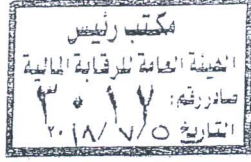 مكتب رئيس
الهيئة العامة للرقابة المالية
صادر رقم: ٣٠١٧
التاريخ ٢٠١٨/٧/٥